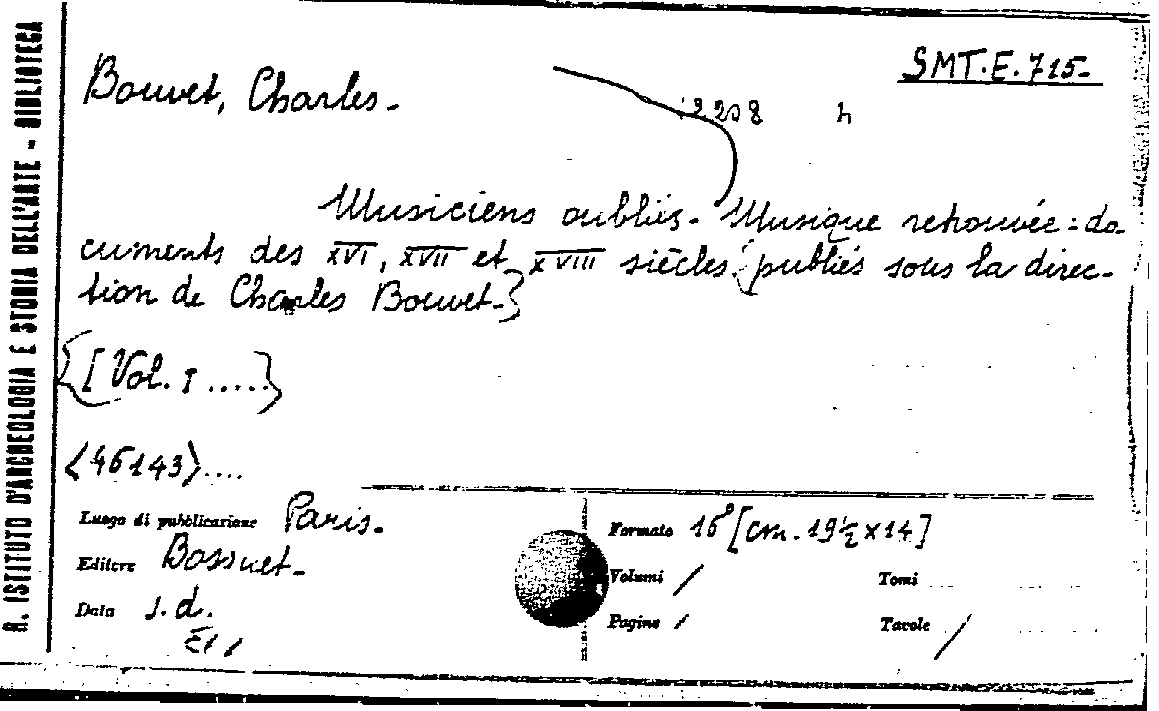 R. ISTITUTO D'ARCHEOLOGIA E STORIA DELL'ARTE - BIBLIOTECA
SMT.E.715-
Bouvet, Charles-
12208 h
Musiciens oubliés - Musique retrouvée: do-
cuments des XVI, XVII et XVIII siècles {publiés sous la direc-
tion de Charles Bouvet-}
{[Vol. I .....}
<46143>....
Luogo di pubblicazione Paris.
Editore Bossuet-
Data s.d.
Formato 16° [cm. 19½ x 14]
Volumi /
Tomi
Pagine /
Tavole /